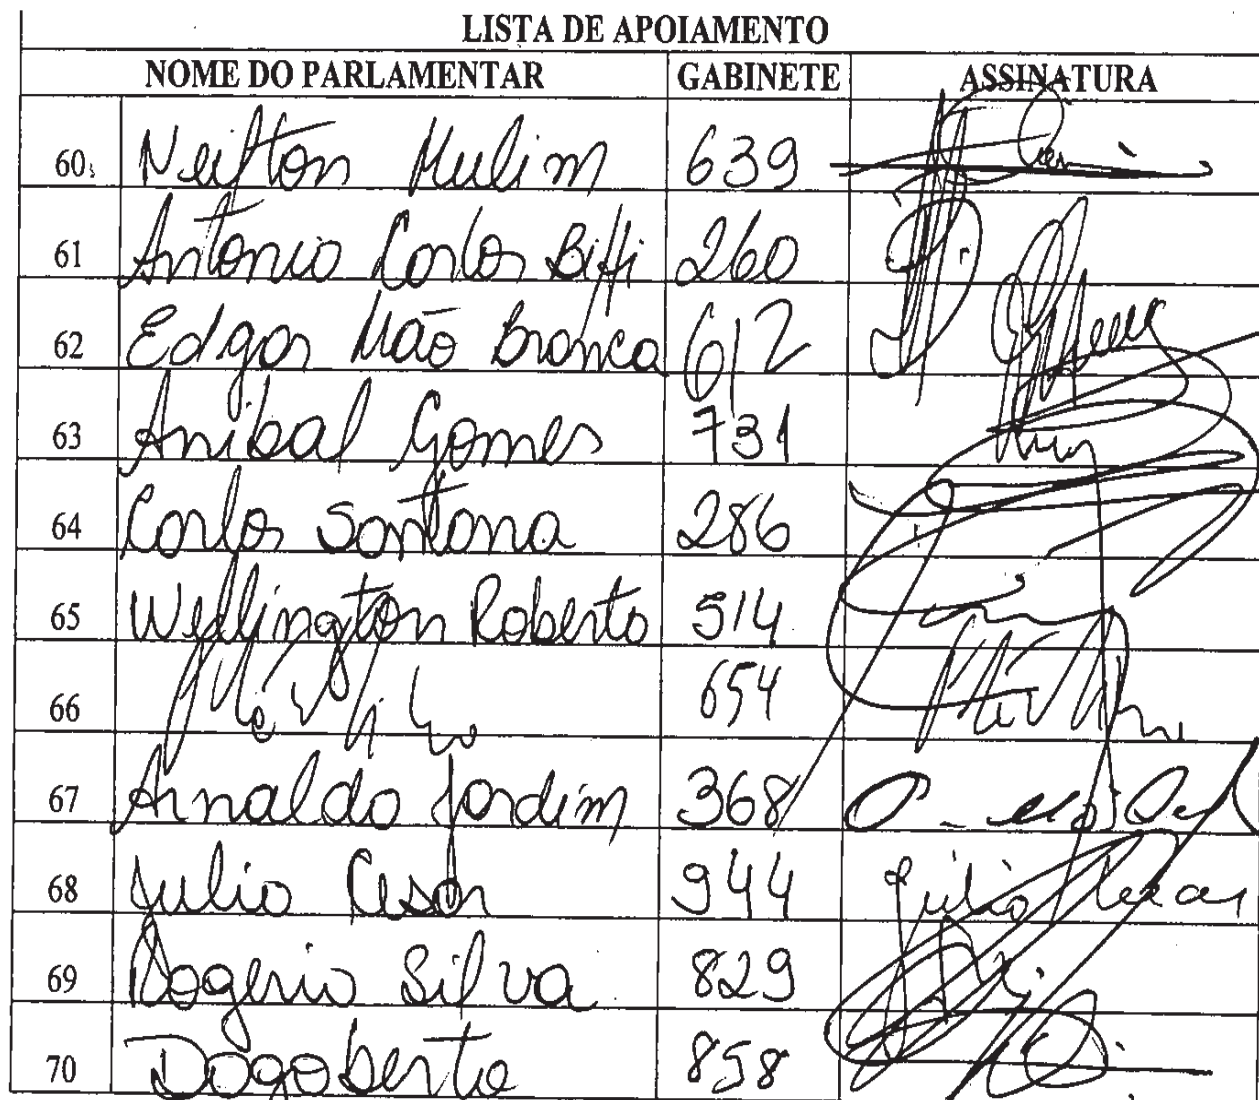 LISTA DE APOIAMENTO
NOME DO PARLAMENTAR GABINETE ASSINATURA
60 Neilton Mulim 639
61 Antonio Carlos Biffi 260
62 Edgar Mão Branca 612
63 Anibal Gomes 731
64 Carlos Santana 286
65 Wellington Roberto 514
66 654
67 Arnaldo Jardim 368
68 Julio Cesar 944 Júlio Cesar
69 Rogerio Silva 829
70 Dagoberto 858